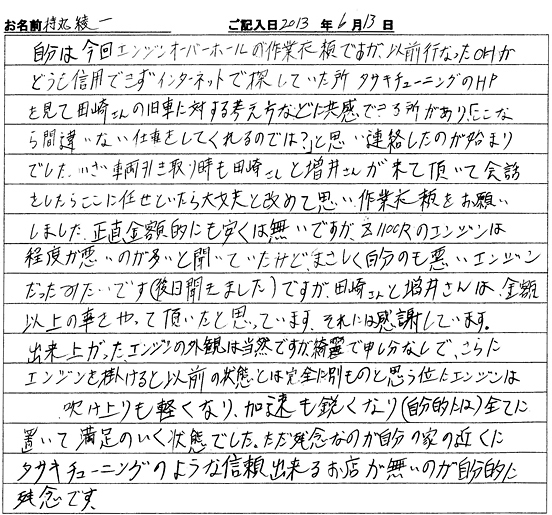 お名前 持丸 綾一 ご記入日 2013 年 6月 13日
自分は今回エンジンオーバーホールの作業依頼ですが、以前行なったOHが
どうも信用できずインターネットで探していた所タサキチューニングのHP
を見て田崎さんの旧車に対する考え方などに共感できる所があり、「ここな
ら間違いない仕事をしてくれるのでは?」と思い連絡したのが始まり
でした。いざ車両引き取り時も田崎さんと増井さんが来て頂いて会話
をしたらここに任せていたら大丈夫と改めて思い、作業依頼をお願い
しました。正直金額的にも安くは無いですが、Z1100Rのエンジンは
程度が悪いのが多いと聞いていたけどまさしく自分のも悪いエンジン
だったみたいです(後日聞きました)ですが、田崎さんと増井さんは、金額
以上の事をやって頂いたと思っています。それには感謝しています。
出来上がったエンジンの外観は当然ですが綺麗で申し分なしで、さらに
エンジンを掛けると以前の状態とは完全に別ものと思う位にエンジンは
吹け上りも軽くなり、加速も鋭くなり(自分的には)全てに
置いて満足のいく状態でした。ただ残念なのが自分の家の近くに
タサキチューニングのような信頼出来るお店が無いのが自分的に
残念です。